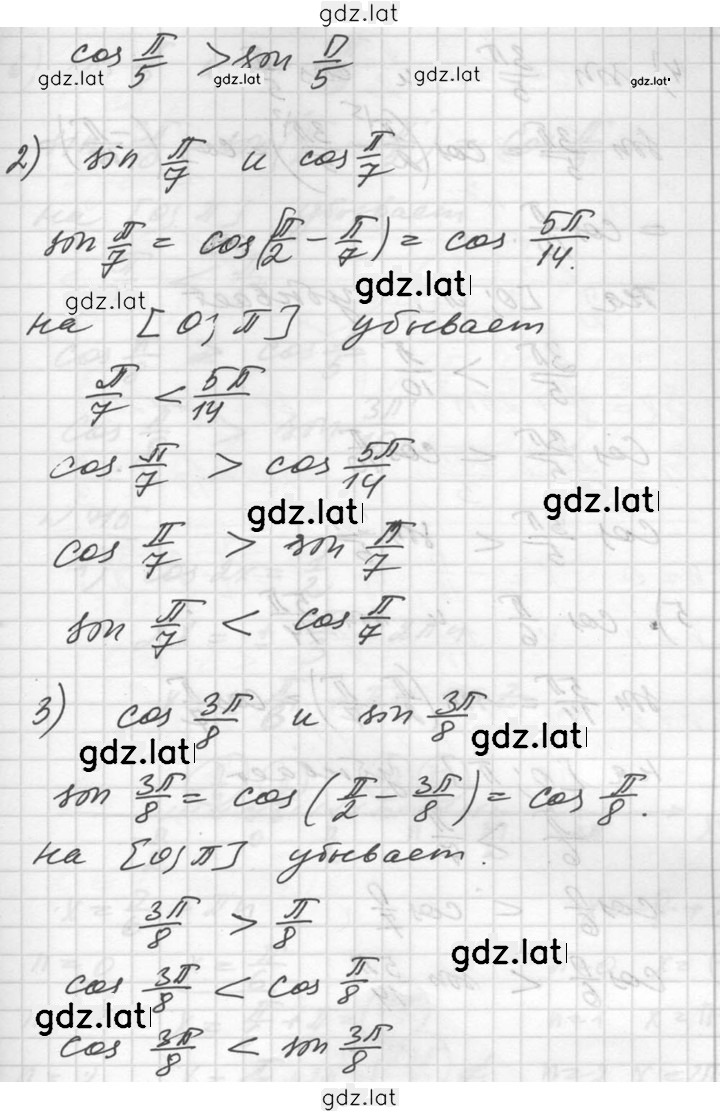 gdz.lat
cos π/5 > sin π/5
gdz.lat gdz.lat gdz.lat gdz.lat
2) sin π/7 и cos π/7
sin π/7 = cos(π/2 - π/7) = cos 5π/14.
gdz.lat gdz.lat
на [0; π] убывает
π/7 < 5π/14
cos π/7 > cos 5π/14
gdz.lat gdz.lat
cos π/7 > sin π/7
sin π/7 < cos π/7
3) cos 3π/8 и sin 3π/8
gdz.lat gdz.lat
sin 3π/8 = cos(π/2 - 3π/8) = cos π/8.
на [0; π] убывает.
3π/8 > π/8
gdz.lat
cos 3π/8 < cos π/8
gdz.lat
cos 3π/8 < sin 3π/8
gdz.lat